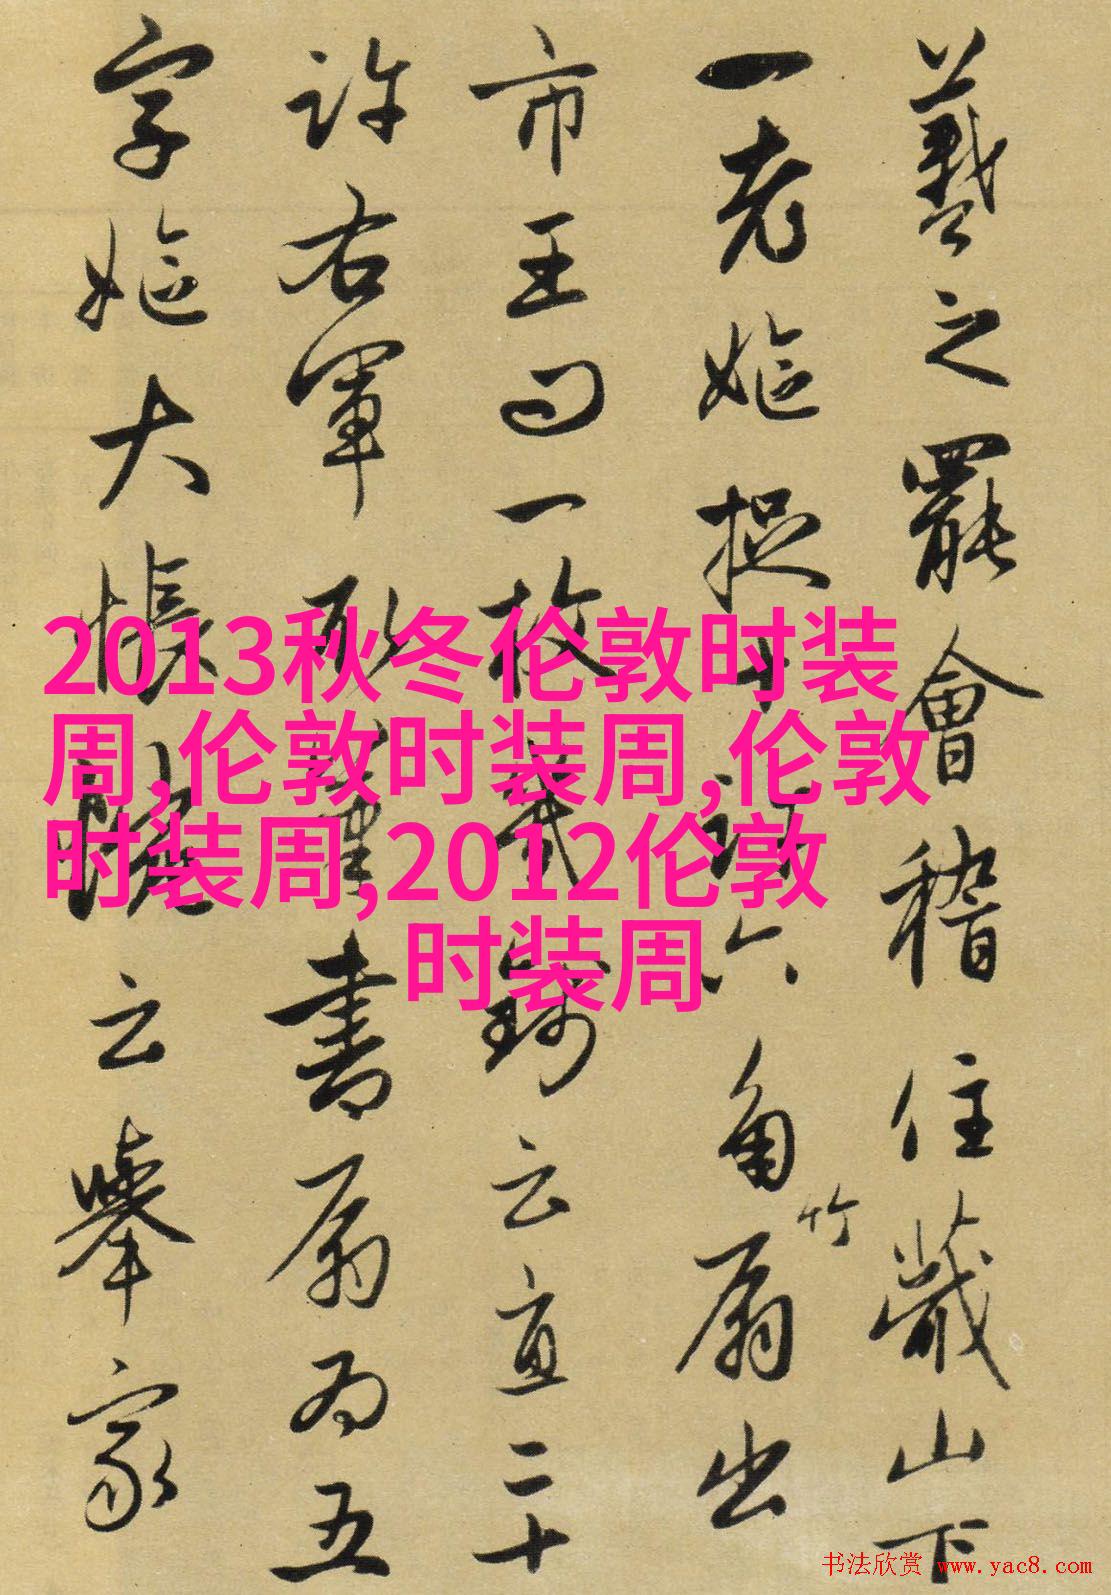 羲之罷會稽住蕺山下
一老嫗捉十許六角竹扇出
市王曰一枚幾錢云直二十
許右軍取筆書扇為五
字嫗大悵惋云舉家
2013秋冬伦敦时装
周,伦敦时装周,伦敦
时装周,2012伦敦
时装周
书法欣赏 www.yac8.com